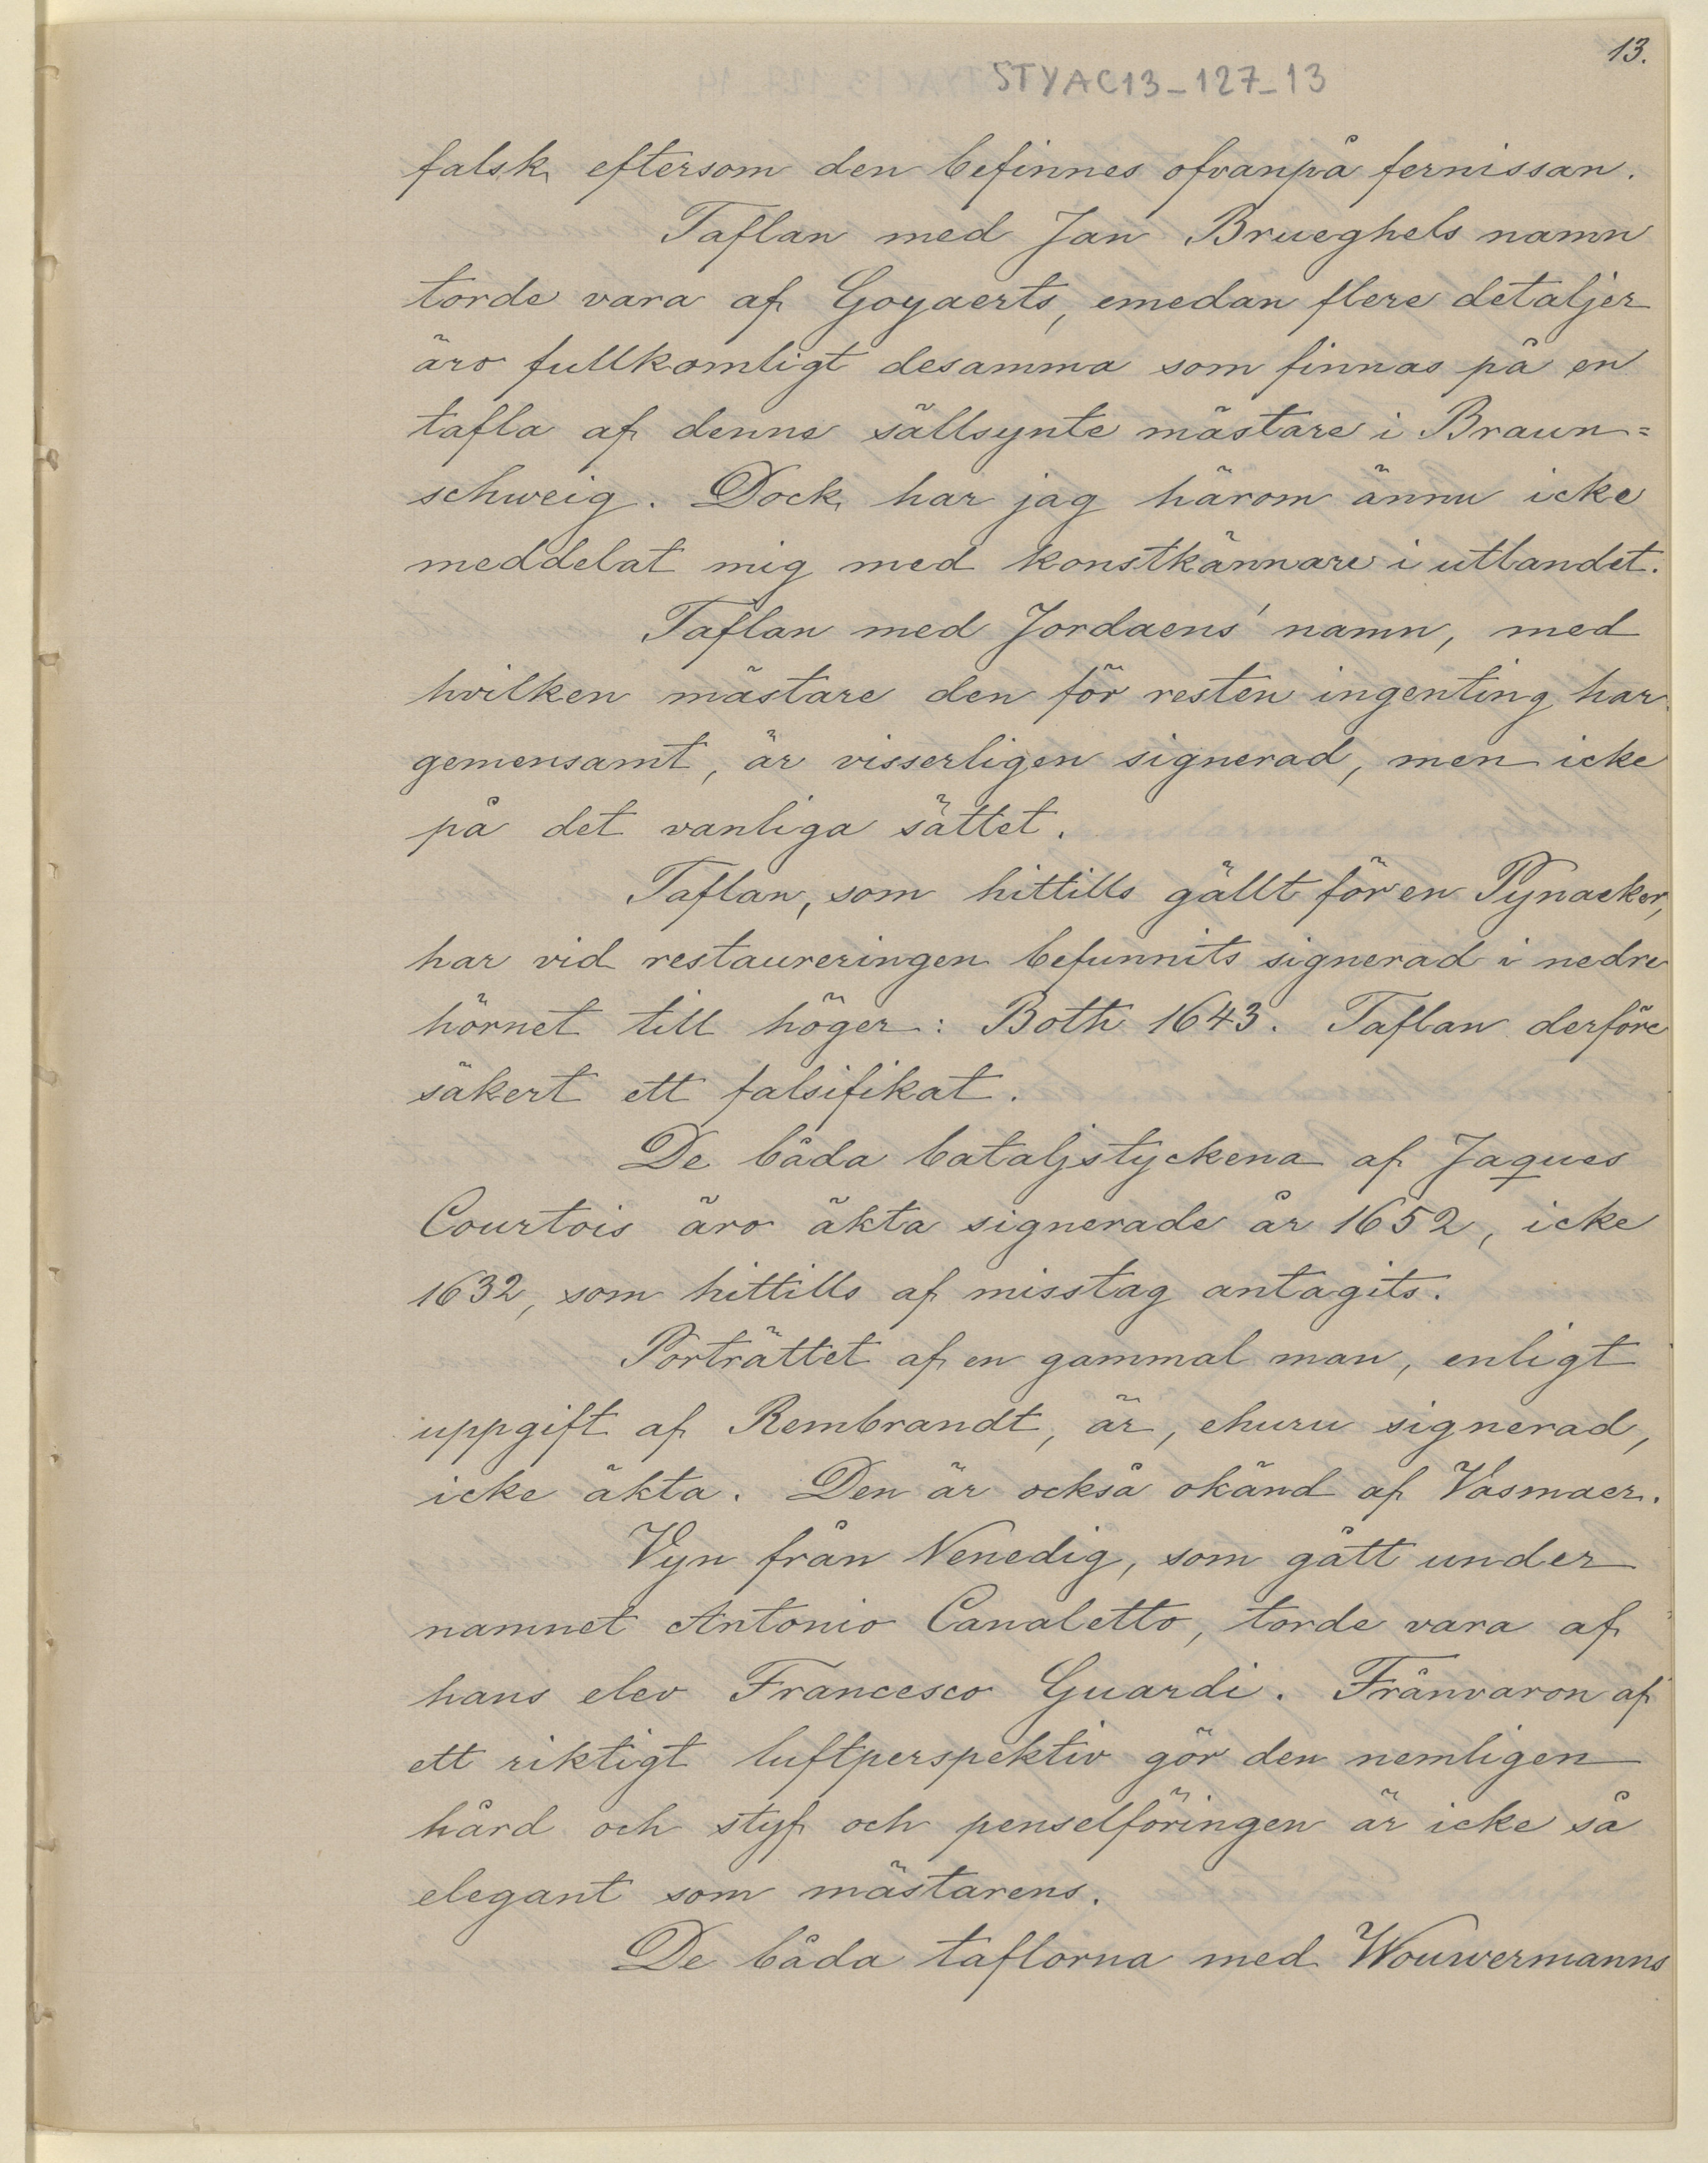 13.
STYAC13_127_13
falsk eftersom den befinnes ofvanpå fernissan.
Taflan med Jan Brueghels namn
torde vara af Goyaerts, emedan flere detaljer
äro fullkomligt desamma som finnas på en
tafla af denne sällsynte mästare i Braun=
schweig. Dock har jag härom ännu icke
meddelat mig med konstkännare i utlandet.
Taflan med Jordaens' namn, med
hvilken mästare den för resten ingenting har
gemensamt, är visserligen signerad, men icke
på det vanliga sättet.
Taflan, som hittills gällt för en Pynacker,
har vid restaureringen befunnits signerad i nedre
hörnet till höger: Both 1643. Taflan derföre
säkert ett falsifikat.
De båda bataljstyckena af Jaques
Courtois äro äkta signerade år 1652, icke
1632, som hittills af misstag antagits.
Porträttet af en gammal man, enligt
uppgift af Rembrandt, är, ehuru signerad,
icke äkta. Den är också okänd af Vosmaer.
Vyn från Venedig, som gått under
namnet Antonio Canaletto, torde vara af
hans elev Francesco Guardi. Frånvaron af
ett riktigt luftperspektiv gör den nemligen
hård och styf och penselföringen är icke så
elegant som mästarens.
De båda taflorna med Wouwermanns